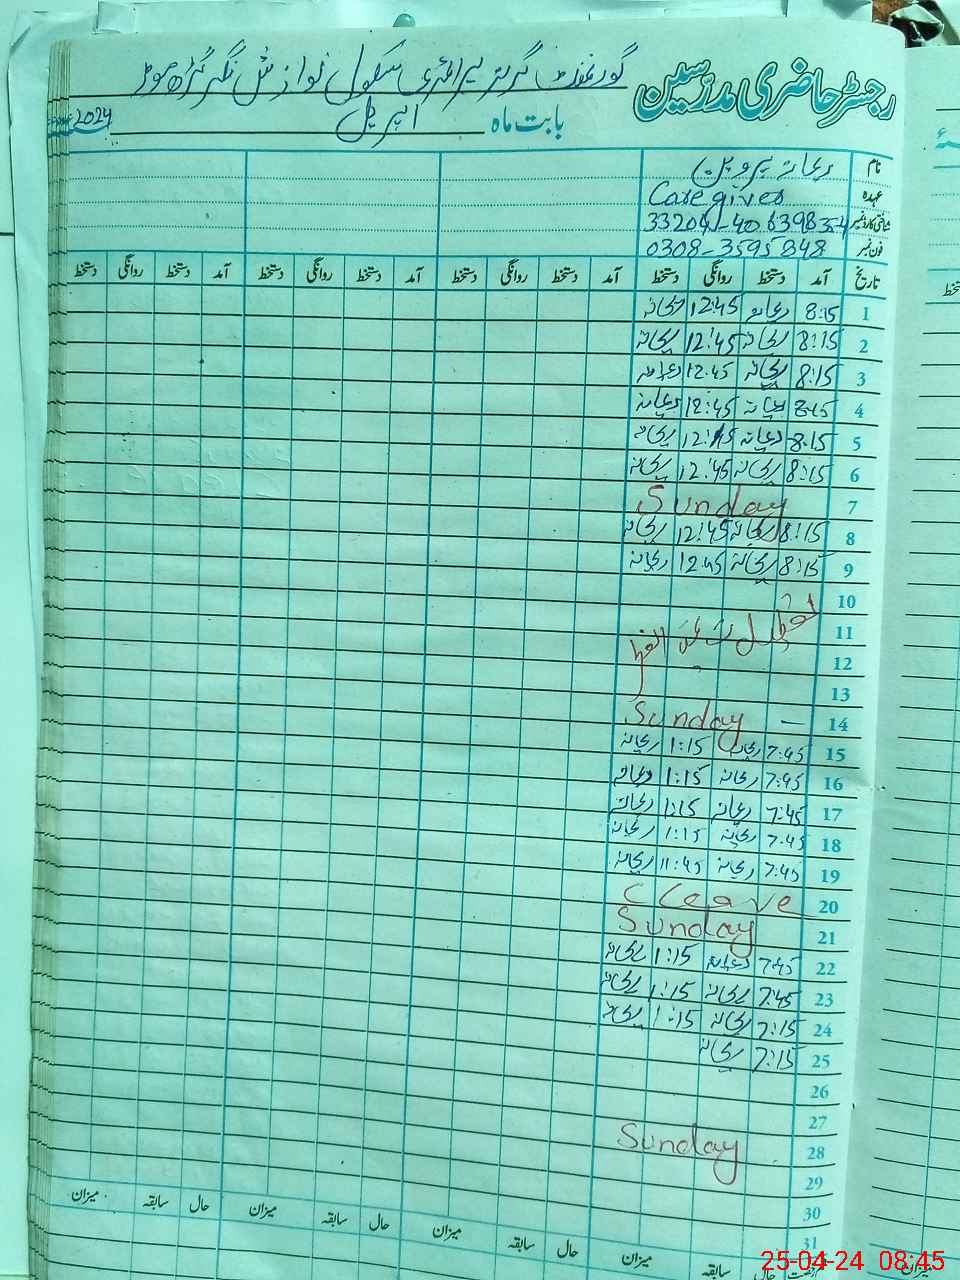 رجسٹر حاضری مدرسین گورنمنٹ گرلز پرائمری سکول نوازش نگر گڑھ موڑ
بابت ماہ اپریل 2024
نام ریحانہ پروین
عہدہ Care giver
شناختی کارڈ نمبر
فون نمبر 0308-3595848
تاریخ آمد دستخط روانگی دستخط آمد دستخط روانگی دستخط آمد دستخط روانگی دستخط آمد دستخط روانگی دستخط
1 8:15 ریحانہ 12:45 ریحانہ
2 8:15 ریحانہ 12:45 ریحانہ
3 8:15 ریحانہ 12:45 ریحانہ
4 8:15 ریحانہ 12:45 ریحانہ
5 8:15 ریحانہ 12:45 ریحانہ
6 8:15 ریحانہ 12:45 ریحانہ
7 Sunday
8 8:15 ریحانہ 12:45 ریحانہ
9 8:15 ریحانہ 12:45 ریحانہ
10
11 عید الفطر
12
13
14 Sunday
15 7:45 ریحانہ 1:15 ریحانہ
16 7:45 ریحانہ 1:15 ریحانہ
17 7:45 ریحانہ 1:15 ریحانہ
18 7:45 ریحانہ 1:15 ریحانہ
19 7:45 ریحانہ 11:45 ریحانہ
20 C Leave
21 Sunday
22 7:45 ریحانہ 1:15 ریحانہ
23 7:45 ریحانہ 1:15 ریحانہ
24 7:15 ریحانہ 1:15 ریحانہ
25 7:15 ریحانہ
26
27
28 Sunday
29
30
31
حال سابقہ میزان حال سابقہ میزان حال سابقہ میزان حال سابقہ میزان
25-04-24 08:45